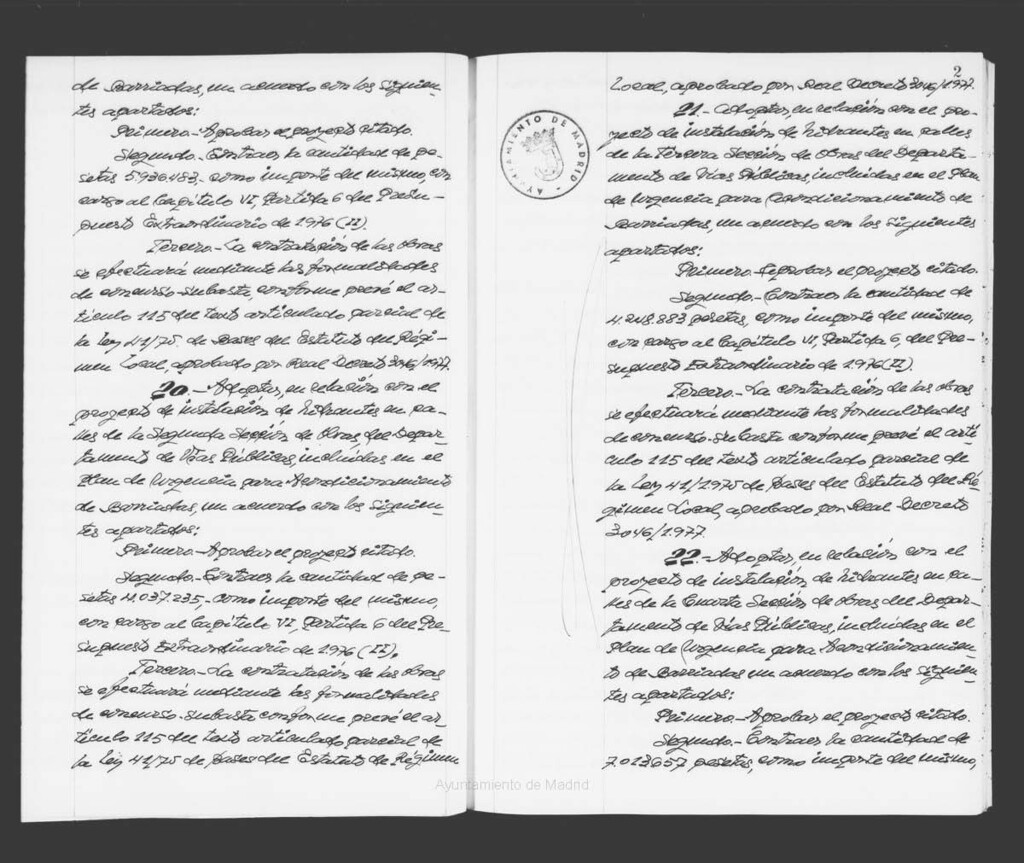 de Barriadas, un acuerdo con los siguien-
tes apartados:
Primero.- Aprobar el proyecto citado.
Segundo.- Contraer la cantidad de pe-
setas 5.936.483, como importe del mismo, con
cargo al Capítulo VI, Partida 6 del Presu-
puesto Extraordinario de 1976 (II).
Tercero.- La contratación de las obras
se efectuará mediante las formalidades
de concurso-subasta, conforme prevé el ar-
tículo 115 del texto articulado parcial de
la Ley 41/75, de Bases del Estatuto del Régi-
men Local, aprobado por Real Decreto 3046/1977.
20.- Adoptar, en relación con el
proyecto de instalación de hidrantes en ca-
lles de la Segunda Sección de Obras del Depar-
tamento de Vías Públicas, incluidas en el
Plan de Urgencia para Acondicionamiento
de Barriadas, un acuerdo con los siguien-
tes apartados:
Primero.- Aprobar el proyecto citado.
Segundo.- Contraer la cantidad de pe-
setas 4.037.235, como importe del mismo,
con cargo al Capítulo VI, Partida 6 del Pre-
supuesto Extraordinario de 1976 (II).
Tercero.- La contratación de las obras
se efectuará mediante las formalidades
de concurso-subasta conforme prevé el ar-
tículo 115 del texto articulado parcial de
la Ley 41/75 de Bases del Estatuto de Régimen
2
Local, aprobado por Real Decreto 3046/1977.
21.- Adoptar, en relación con el pro-
yecto de instalación de hidrantes en calles
de la Tercera Sección de Obras del Departa-
mento de Vías Públicas, incluidas en el Plan
de Urgencia para Acondicionamiento de
Barriadas, un acuerdo con los siguientes
apartados:
Primero.- Aprobar el proyecto citado.
Segundo.- Contraer la cantidad de
4.248.883 pesetas, como importe del mismo,
con cargo al Capítulo VI, Partida 6, del Pre-
supuesto Extraordinario de 1976 (II).
Tercero.- La contratación de las obras
se efectuará mediante las formalidades
de concurso-subasta conforme prevé el artí-
culo 115 del texto articulado parcial de
la Ley 41/1975 de Bases del Estatuto del Ré-
gimen Local, aprobado por Real Decreto
3046/1977.
22.- Adoptar, en relación con el
proyecto de instalación de hidrantes en ca-
lles de la Cuarta Sección de Obras del Depar-
tamento de Vías Públicas, incluidas en el
Plan de Urgencia para Acondicionamien-
to de Barriadas un acuerdo con los siguien-
tes apartados:
Primero.- Aprobar el proyecto citado.
Segundo.- Contraer la cantidad de
7.013.657 pesetas, como importe del mismo,
AYUNTAMIENTO DE MADRID
Ayuntamiento de Madrid